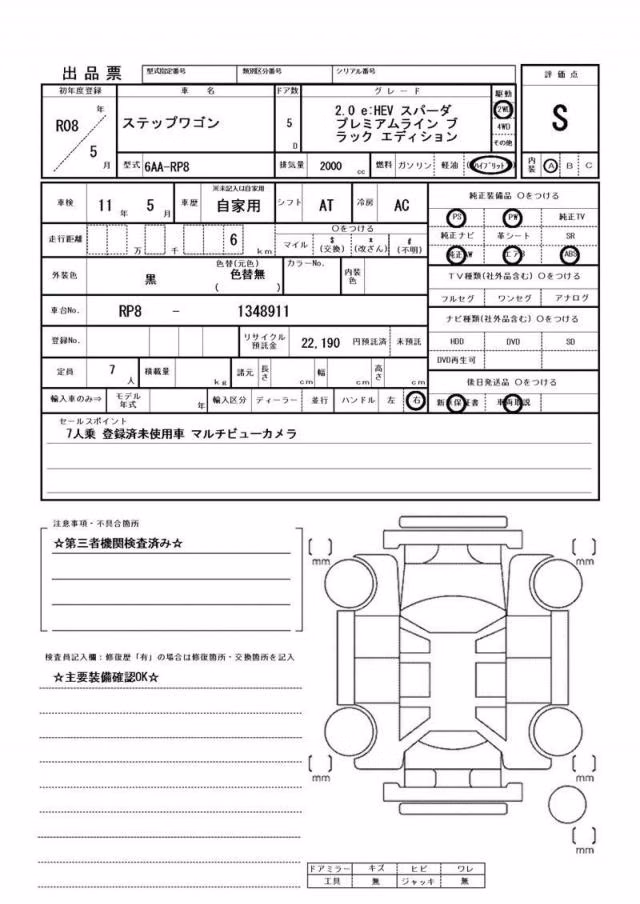 出品票 型式指定番号 類別区分番号 シリアル番号
評価点
初年度登録 車名 ドア数 グレード 駆動
R08 年 5 月
ステップワゴン
5 D
2.0 e:HEV スパーダ
プレミアムライン ブ
ラック エディション
2WD
4WD
その他
S
型式 6AA-RP8 排気量 2000 cc 燃料 ガソリン 軽油 (ハイブリット)
内装 A B C
車検 11 年 5 月 車歴 ※未記入は自家用 自家用 シフト AT 冷房 AC
純正装備品 〇をつける
PS PW 純正TV
純正ナビ 革シート SR
純正AW エアB ABS
走行距離 万 千 6 km
〇をつける
マイル $(交換) x(改ざん) #(不明)
外装色 黒 色替(元色) 色替無 ( ) カラーNo. 内装色
TV種類(社外品含む) 〇をつける
フルセグ ワンセグ アナログ
車台No. RP8 - 1348911
ナビ種類(社外品含む) 〇をつける
HDD DVD SD
DVD再生可
登録No. リサイクル預託金 22,190 円預託済 未預託
定員 7 人 積載量 kg 諸元 長さ cm 幅 cm 高さ cm
後日発送品 〇をつける
新車保証書 車両取説
輸入車のみ⇒ モデル年式 年 輸入区分 ディーラー 並行 ハンドル 左 右
セールスポイント
7人乗 登録済未使用車 マルチビューカメラ
注意事項・不具合箇所
☆第三者機関検査済み☆
[ ] mm
[ ] mm
検査員記入欄：修復歴「有」の場合は修復箇所・交換箇所を記入
☆主要装備確認OK☆
[ ] mm
[ ] mm
[ ] mm
ドアミラー キズ ヒビ ワレ
工具 無 ジャッキ 無